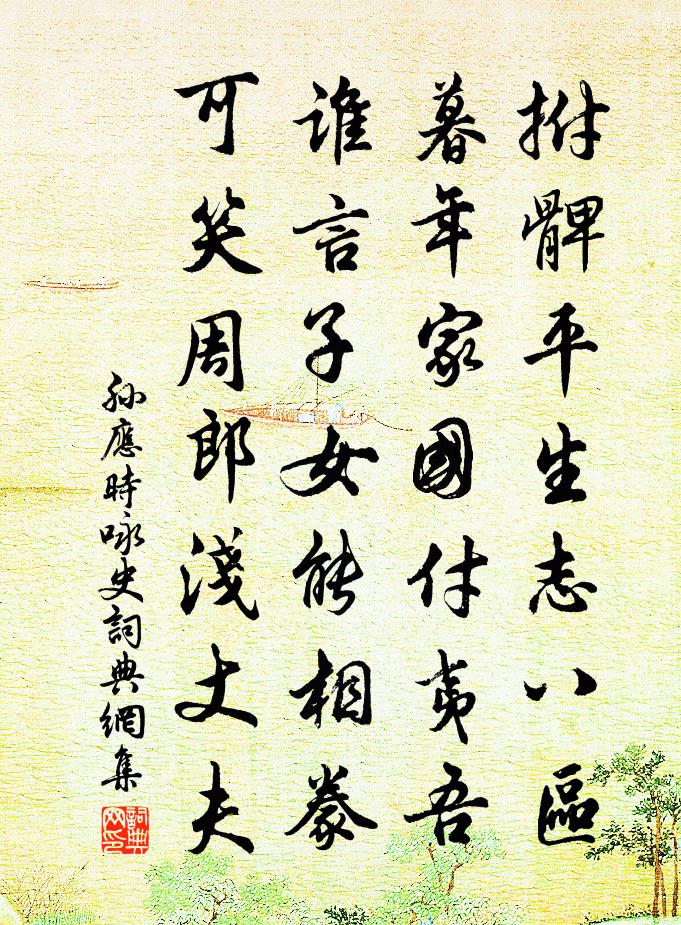 拊髀平生志八區
暮年家國付夷吾
誰言子女能相豢
可笑周郎淺丈夫
孫應時咏史詞典網集
詞典網印